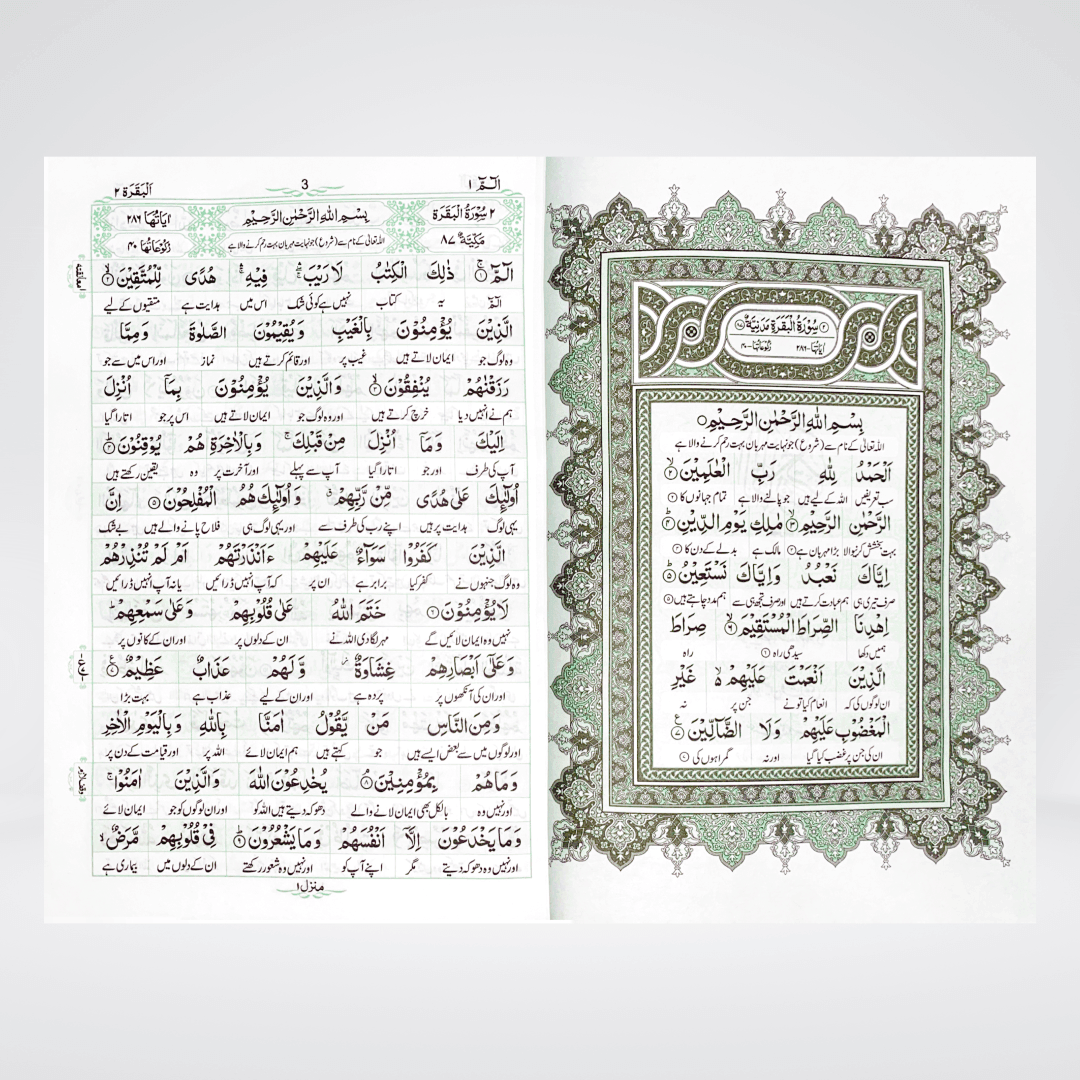 ٢ سُوْرَةُ الْبَقَرَةِ مَدَنِيَّةٌ ٨٧
اٰيَاتُهَا-٢٨٦ رُكُوْعَاتُهَا-٤٠
بِسْمِ اللّٰهِ الرَّحْمٰنِ الرَّحِيْمِ ۝١
اللہ تعالیٰ کے نام سے (شروع) جو نہایت مہربان بہت رحم کرنے والا ہے
اَلْحَمْدُ لِلّٰهِ رَبِّ الْعٰلَمِيْنَ ۝٢
سب تعریفیں اللہ کے لیے ہیں جو پالنے والا ہے تمام جہانوں کا ۝٢
الرَّحْمٰنِ الرَّحِيْمِ ۝٣ مٰلِكِ يَوْمِ الدِّيْنِ ۝٤
بہت بخشش کرنیوالا بڑا مہربان ہے ۝٣ مالک ہے بدلے کے دن کا ۝٤
اِيَّاكَ نَعْبُدُ وَاِيَّاكَ نَسْتَعِيْنُ ۝٥
صرف تیری ہی ہم عبادت کرتے ہیں اور صرف تجھ ہی سے ہم مدد چاہتے ہیں ۝٥
اِهْدِنَا الصِّرَاطَ الْمُسْتَقِيْمَ ۝٦ صِرَاطَ
ہمیں دکھا سیدھی راہ ۝٦ راہ
الَّذِيْنَ اَنْعَمْتَ عَلَيْهِمْ غَيْرِ
ان لوگوں کی کہ انعام کیا تو نے جن پر نہ
الْمَغْضُوْبِ عَلَيْهِمْ وَلَا الضَّآلِّيْنَ ۝٧
ان کی جن پر غضب کیا گیا اور نہ گمراہوں کی ۝٧
الٓمّٓ ١ 3 اَلْبَقَرَة ٢
٢ سُوْرَةُ الْبَقَرَةِ بِسْمِ اللّٰهِ الرَّحْمٰنِ الرَّحِيْمِ اٰيَاتُهَا ٢٨٦
مَدَنِيَّةٌ ٨٧ اللہ تعالیٰ کے نام سے (شروع) جو نہایت مہربان بہت رحم کرنے والا ہے رُكُوْعَاتُهَا ٤٠
الٓمّٓ ۝١ ذٰلِكَ الْكِتٰبُ لَا رَيْبَ فِيْهِ هُدًى لِّلْمُتَّقِيْنَ ۝٢
الٓمّٓ یہ کتاب نہیں ہے کوئی شک اس میں ہدایت ہے متقیوں کے لیے
الَّذِيْنَ يُؤْمِنُوْنَ بِالْغَيْبِ وَيُقِيْمُوْنَ الصَّلٰوةَ وَمِمَّا
وہ لوگ جو ایمان لاتے ہیں غیب پر اور قائم کرتے ہیں نماز اور اس میں سے جو
رَزَقْنٰهُمْ يُنْفِقُوْنَ ۝٣ وَالَّذِيْنَ يُؤْمِنُوْنَ بِمَآ اُنْزِلَ
ہم نے انہیں دیا خرچ کرتے ہیں اور وہ لوگ جو ایمان لاتے ہیں اس پر جو اتارا گیا
اِلَيْكَ وَمَآ اُنْزِلَ مِنْ قَبْلِكَ وَبِالْاٰخِرَةِ هُمْ يُوْقِنُوْنَ ۝٤
آپ کی طرف اور جو اتارا گیا آپ سے پہلے اور آخرت پر وہ یقین رکھتے ہیں
اُولٰٓئِكَ عَلٰى هُدًى مِّنْ رَّبِّهِمْ وَاُولٰٓئِكَ هُمُ الْمُفْلِحُوْنَ ۝٥ اِنَّ
یہی لوگ ہدایت پر ہیں اپنے رب کی طرف سے اور یہی لوگ ہی فلاح پانے والے ہیں بے شک
الَّذِيْنَ كَفَرُوْا سَوَآءٌ عَلَيْهِمْ ءَاَنْذَرْتَهُمْ اَمْ لَمْ تُنْذِرْهُمْ
وہ لوگ جنہوں نے کفر کیا برابر ہے ان پر کہ آپ انہیں ڈرائیں یا نہ آپ انہیں ڈرائیں
لَا يُؤْمِنُوْنَ ۝٦ خَتَمَ اللّٰهُ عَلٰى قُلُوْبِهِمْ وَعَلٰى سَمْعِهِمْ
نہیں وہ ایمان لائیں گے مہر لگا دی اللہ نے ان کے دلوں پر اور ان کے کانوں پر
وَعَلٰٓى اَبْصَارِهِمْ غِشَاوَةٌ وَّلَهُمْ عَذَابٌ عَظِيْمٌ ۝٧
اور ان کی آنکھوں پر پردہ ہے اور ان کے لیے عذاب ہے بہت بڑا
وَمِنَ النَّاسِ مَنْ يَّقُوْلُ اٰمَنَّا بِاللّٰهِ وَبِالْيَوْمِ الْاٰخِرِ
اور لوگوں میں سے بعض ایسے ہیں جو کہتے ہیں ہم ایمان لائے اللہ پر اور قیامت کے دن پر
وَمَا هُمْ بِمُؤْمِنِيْنَ ۝٨ يُخٰدِعُوْنَ اللّٰهَ وَالَّذِيْنَ اٰمَنُوْا
اور نہیں وہ بالکل بھی ایمان لانے والے دھوکہ دیتے ہیں اللہ کو اور ان لوگوں کو جو ایمان لائے
وَمَا يَخْدَعُوْنَ اِلَّآ اَنْفُسَهُمْ وَمَا يَشْعُرُوْنَ ۝٩ فِيْ قُلُوْبِهِمْ مَّرَضٌ
اور نہیں وہ دھوکہ دیتے مگر اپنے آپ کو اور نہیں وہ شعور رکھتے ان کے دلوں میں بیماری ہے
منزل ١